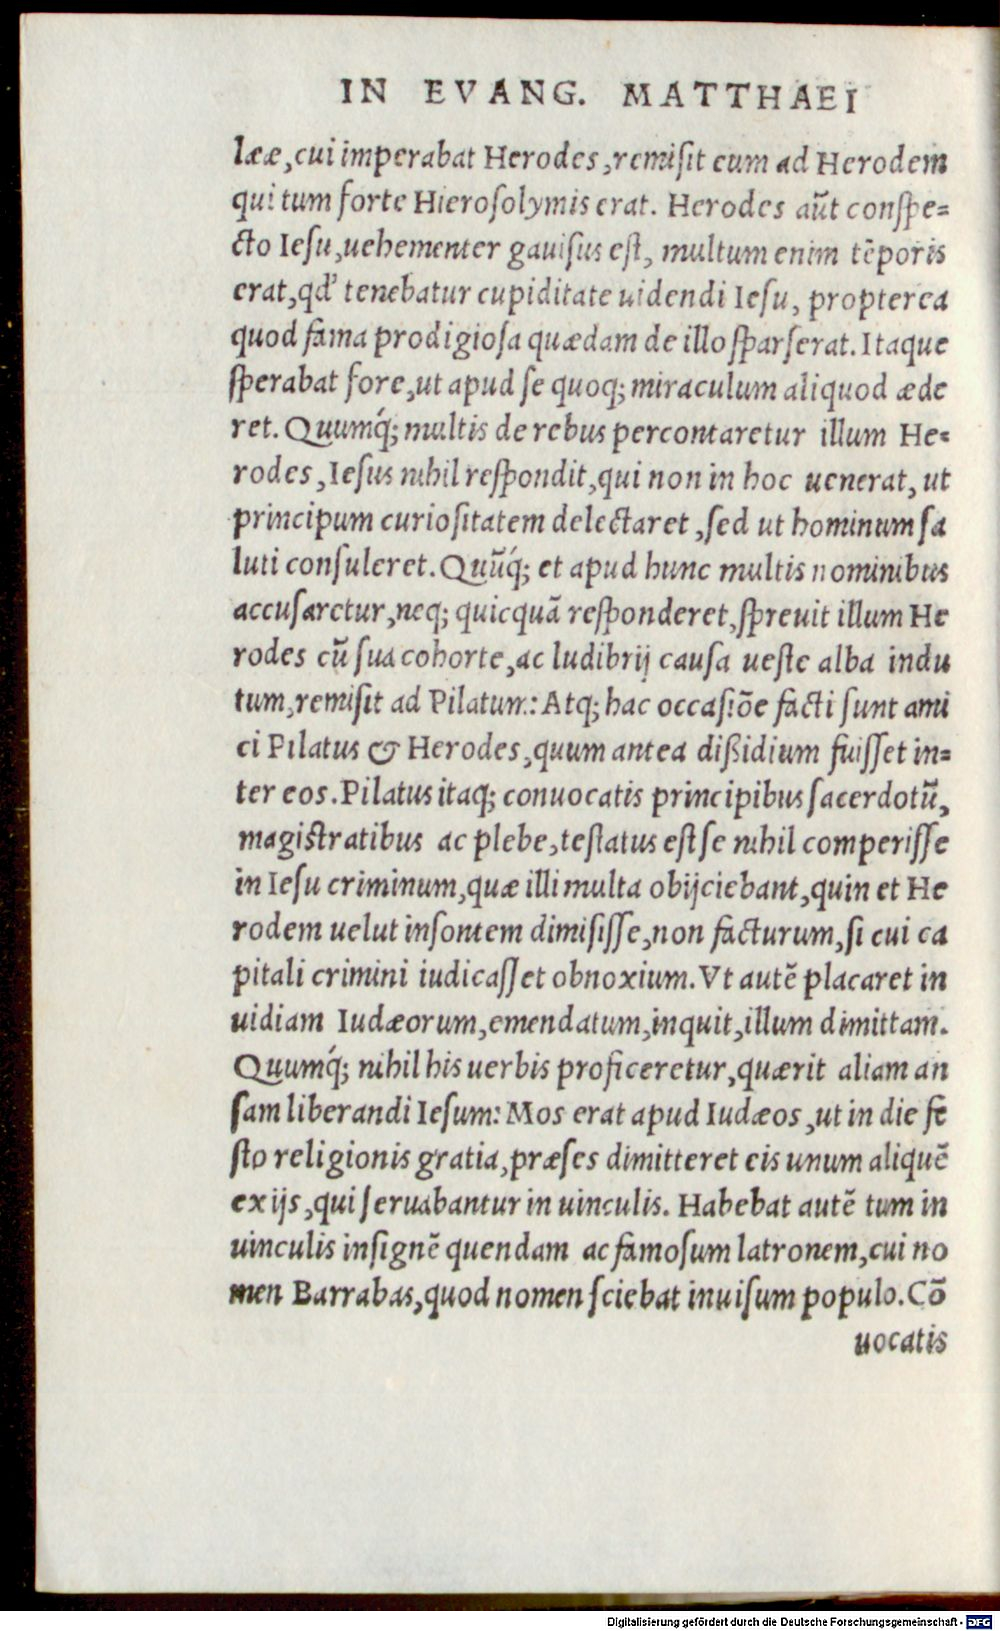 IN EVANG. MATTHAEI
lææ, cui imperabat Herodes, remiſit eum ad Herodem
qui tum forte Hieroſolymis erat. Herodes aũt conſpe=
cto Ieſu, uehementer gauiſus eſt, multum enim tẽporis
erat, qđ tenebatur cupiditate uidendi Ieſu, propterea
quod fama prodigioſa quædam de illo ſparſerat. Itaque
ſperabat fore, ut apud ſe quoq; miraculum aliquod æde
ret. Quumq́; multis de rebus percontaretur illum He=
rodes, Ieſus nihil reſpondit, qui non in hoc uenerat, ut
principum curioſitatem delectaret, ſed ut hominum ſa
luti conſuleret. Quũq́; et apud hunc multis nominibus
accuſaretur, neq; quicquã reſponderet, ſpreuit illum He
rodes cũ ſua cohorte, ac ludibrij cauſa ueſte alba indu
tum, remiſit ad Pilatum: Atq; hac occaſiõe facti ſunt ami
ci Pilatus & Herodes, quum antea dißidium fuiſſet in=
ter eos. Pilatus itaq; conuocatis principibus ſacerdotũ,
magiſtratibus ac plebe, teſtatus eſt ſe nihil comperiſſe
in Ieſu criminum, quæ illi multa obijciebant, quin et He
rodem uelut inſontem dimiſiſſe, non facturum, ſi cui ca
pitali crimini iudicaſſet obnoxium. Vt autẽ placaret in
uidiam Iudæorum, emendatum, inquit, illum dimittam.
Quumq́; nihil his uerbis proficeretur, quærit aliam an
ſam liberandi Ieſum: Mos erat apud Iudæos, ut in die fe
ſto religionis gratia, præſes dimitteret eis unum aliquẽ
ex ijs, qui ſeruabantur in uinculis. Habebat autẽ tum in
uinculis inſignẽ quendam ac famoſum latronem, cui no
men Barrabas, quod nomen ſciebat inuiſum populo. Cõ
uocatis
Digitalisierung gefördert durch die Deutsche Forschungsgemeinschaft - DFG